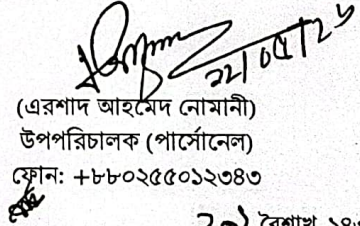 ২২/০৫/২৬
(এরশাদ আহমেদ নোমানী)
উপপরিচালক (পার্সোনেল)
ফোন: +৮৮০২৫৫০১২৩৪৩
বৈশাখ